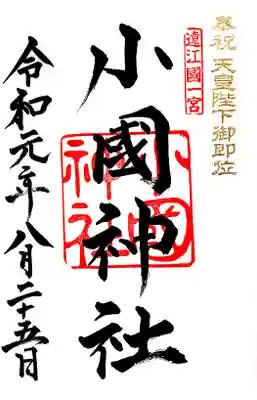 奉祝 天皇陛下御即位
遠江國一宮
小國神社
小國神社
令和元年八月二十五日